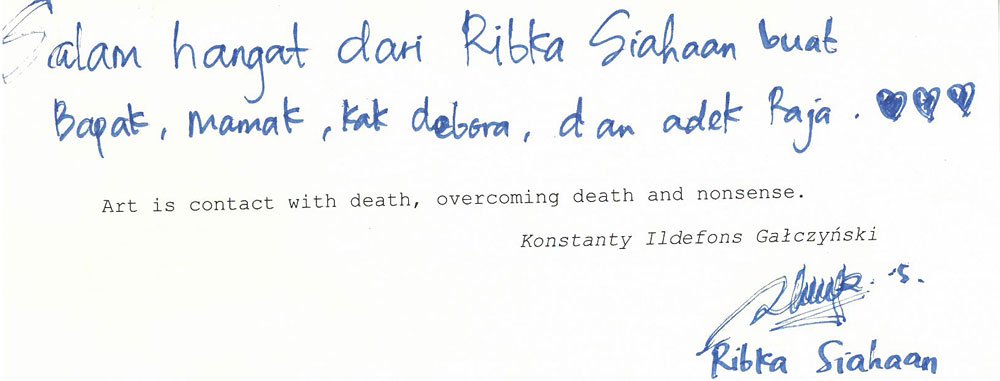 Salam hangat dari Ribka Siahaan buat
Bapak, mamak, kak debora, dan adek Raja.
Art is contact with death, overcoming death and nonsense.
Konstanty Ildefons Gałczyński
Ribka Siahaan